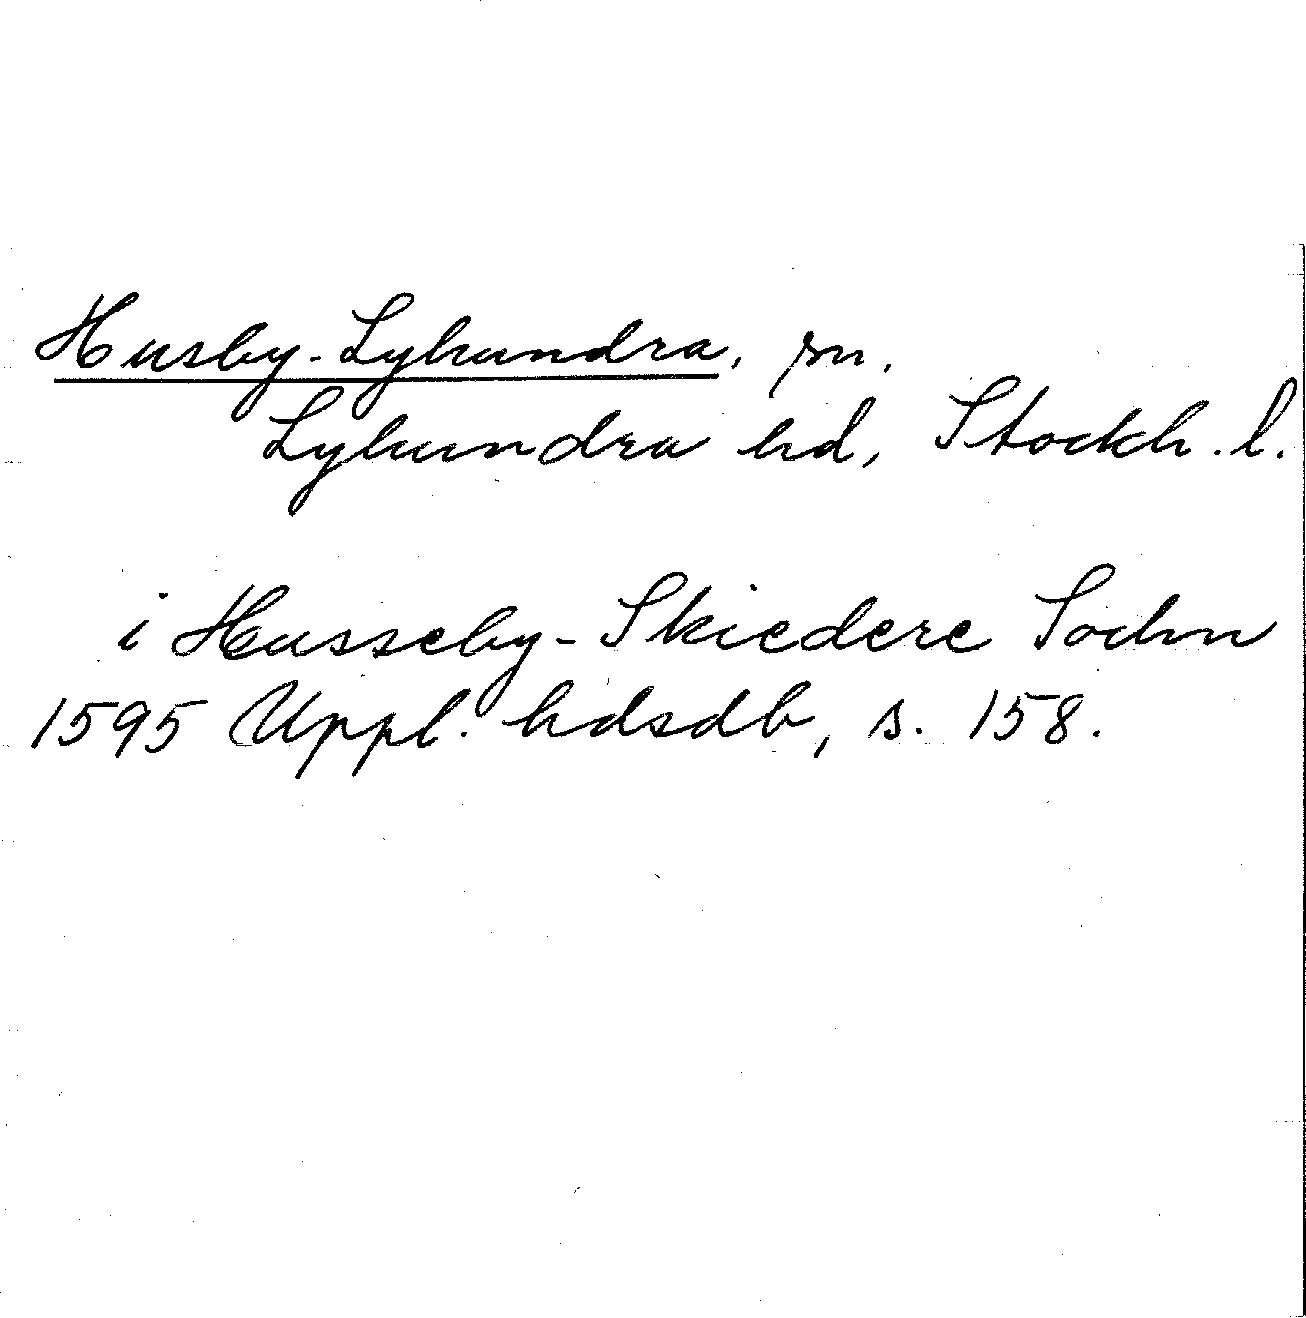 Husby-Lyhundra, sn.
Lyhundra hd, Stockh. l.
i Husseby-Skiedere Sochn
1595 Uppl. hdsdb, s. 158.